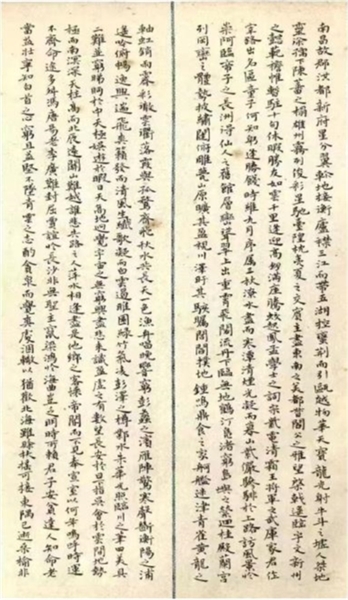 南昌故郡洪都新府星分翼軫地接衡廬襟三江而帶五湖控蠻荊而引甌越物華天寶龍光射牛斗之墟人傑地
靈徐孺下陳蕃之榻雄州霧列俊彩星馳臺隍枕夷夏之交賓主盡東南之美都督閻公之雅望棨戟遙臨宇文新州
之懿範襜帷暫駐十旬休暇勝友如雲千里逢迎高朋滿座騰蛟起鳳孟學士之詞宗紫電清霜王將軍之武庫家君作
宰路出名區童子何知躬逢勝餞時維九月序屬三秋潦水盡而寒潭清煙光凝而暮山紫儼驂騑於上路訪風景於
崇阿臨帝子之長洲得仙人之舊館層巒聳翠上出重霄飛閣流丹下臨無地鶴汀鳧渚窮島嶼之縈迴桂殿蘭宮
列岡巒之體勢披繡闥俯雕甍山原曠其盈視川澤盱其駭矚閭閻撲地鐘鳴鼎食之家舸艦迷津青雀黃龍之
軸虹銷雨霽彩徹雲衢落霞與孤鶩齊飛秋水共長天一色漁舟唱晚響窮彭蠡之濱雁陣驚寒聲斷衡陽之浦
遙吟俯暢逸興遄飛爽籟發而清風生纖歌凝而白雲遏睢園綠竹氣凌彭澤之樽鄴水朱華光照臨川之筆四美具
二難並窮睇眄於中天極娛遊於暇日天高地迥覺宇宙之無窮興盡悲來識盈虛之有數望長安於日下指吳會於雲間地勢
極而南溟深天柱高而北辰遠關山難越誰悲失路之人萍水相逢盡是他鄉之客懷帝閽而不見奉宣室以何年嗚呼時運
不齊命途多舛馮唐易老李廣難封屈賈誼於長沙非無聖主竄梁鴻於海曲豈乏明時所賴君子安貧達人知命老
當益壯寧知白首之心窮且益堅不墜青雲之志酌貪泉而覺爽處涸轍以猶歡北海雖賒扶搖可接東隅已逝桑榆非